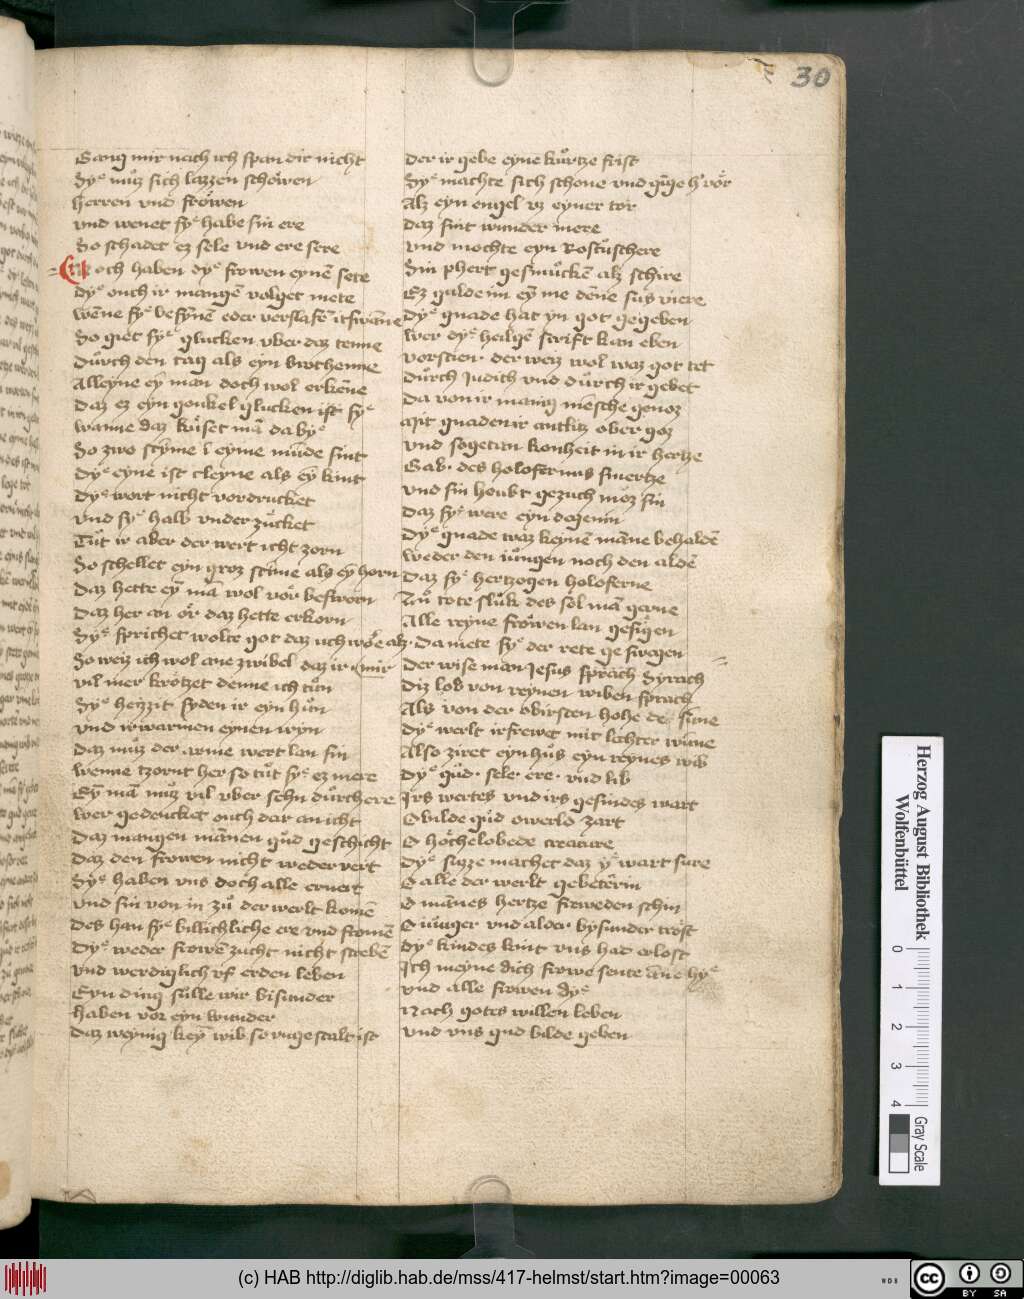 30
Gang mir nach ich span dir nicht
Sye muͦz sich lazzen schoͤwen
Herren vnd froͤwen
vnd wenet sye habe sin ere
So schadet ez sele vnd ere sere
Noch haben dye frowen eynē sete
dye ouch ir mangē volget mete
So get sye glucken vber daz tenne
Duͦrch den tag als eyn bruthenne
Alleyne ey man doch wol erkēne
Daz ez eyn goukel glucken ist sye
wanne daz kuͦset mā da bye
So zwo stȳme ī eyme mūde sint
Dye eyne ist cleyne als eȳ kint
Dye wort nicht vordrucket
vnd sye halb vnder zuͦcket
Tuͦt ir aber der wert icht zorn
So schellet eyn groz stīme als eȳ horn
Daz hette eȳ mā wol vor besworn
Daz her an oͤr daz hette erkorn
Sye sprichet wolte got daz uch woͤe alz
So weiz ich wol ane zwibel daz ir mir
vil mer krotzet denne ich tuͦn
Sye heyzit syden ir eyn huͦn
vnd irwarmen eynen wyn
Daz muͦz der arme wert lan sin
wenne tzornt her so tuͦt sye ez mere
Eȳ mā muͦz vil vber sehn duͦrch ere
wer gedencket ouch dar an icht
Daz mangen mānen guͦd geschicht
Daz den frowen nicht weder vert
Sye haben vns doch alle ernert
vnd sin von in zuͦ der werlt komē
Des han sye billichliche ere vnd fromē
Dye weder frowē zucht nicht strebē
vnd werdiglich vf erden leben
Eyn ding sulle wir bisunder
haben vor eyn wunder
Daz weynig keȳ wib so vngestalt ist
Der ir gebe eyne kuͦrtze frist
Sye machte sich schone vnd
Alz eyn engel vz eyner tor
Daz sint wunder mere
Vnd mochte eyn Rostuͦschere
Sin phert gesmuͦckē alz schire
Ez gulde im eȳ me dēne sus viere
Dye gnade hat yn got gegeben
wer dye heilgē scrift kan eben
vorsten der weiz wol waz got tet
Duͦrch Judith vnd duͦrch ir gebet
Da von ir mang mēsche genoz
Mit gnaden ir antlitz ober goz
vnd sogetan konheit in ir hertze
Gab. des holofernus swertze
vnd sin houbt gezuch muͦz sin
Daz sye were eyn degenin
Dye gnade waz keynē māne behaldē
weder den iuͦngen noch den aldē
Daz sye hertzogen holoferne
Nuͦ tote sluͦk des sol mā gerne
Alle reyne froͤwen lan gesigen
Da mete sye der rete geswigen
Der wise man Jesus sprach Syrach
Diz lob von reynen wiben sprach
Als von der obirsten hohe de sūne
Dye werlt irfrewet mit lechter wūne
Also ziret eyn huͦs eyn reynes wib
Dye guͦd. sele. ere. vnd lib
Irs wertes vnd irs gesindes wart
O bilde guͦd zart
O hochelobede creature
Dye suze machet daz ye wart sure
O alle der werlt gebeterin
O mānes hertze froweden schin
O iuͦnger vnd alder bysunder trost
Dye kindes kint vns had erlost
Ich meyne dich frowe sente āne hye
vnd alle frowen dye
Nach gotes willen leben
vnd vns gud bilde geben
Herzog August Bibliothek
Wolfenbüttel
0 1 2 3 4
Gray Scale
(c) HAB http://diglib.hab.de/mss/417-helmst/start.htm?image=00063
WDB
cc BY SA